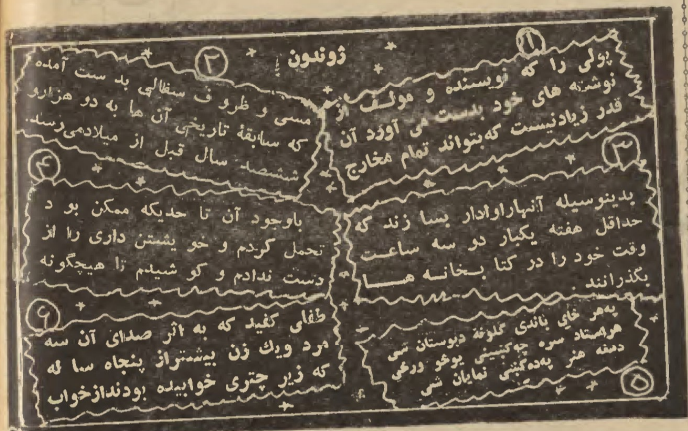 ژوندون
۱
پولی را که نویسنده و مولف از
نوشته های خود بدست می آورد آن
قدر زیادنیست که بتواند تمام مخارج
۲
مسی و ظروف سفالی بد ست آمده
که سابقهٔ تاریخی آن ها به دو هزارو
ششصد سال قبل از میلادمی‌رسد.
۳
بدینوسیله آنهاراوادار بسا زند که
حداقل هفته یکبار دو سه ساعت
وقت خود را در کتا بخانه هـا
بگذرانند
۴
باوجود آن تا حدیکه ممکن بو د
تحمل کردم و خو یشتن داری را از
دست ندادم و کو شیدم تا هیچگونه
۵
به‌هر ځای باندی دبوستان شی
هراستاد سره چه‌کښیښی یوځو ورځی
دهغه هنر په‌ده‌کښی نمایان شی
۶
طفلی کفید که به اثر صدای آن سه
مرد ویک زن بیشتراز پنجاه سا له
که زیر چتری خوابیده بودندازخواب